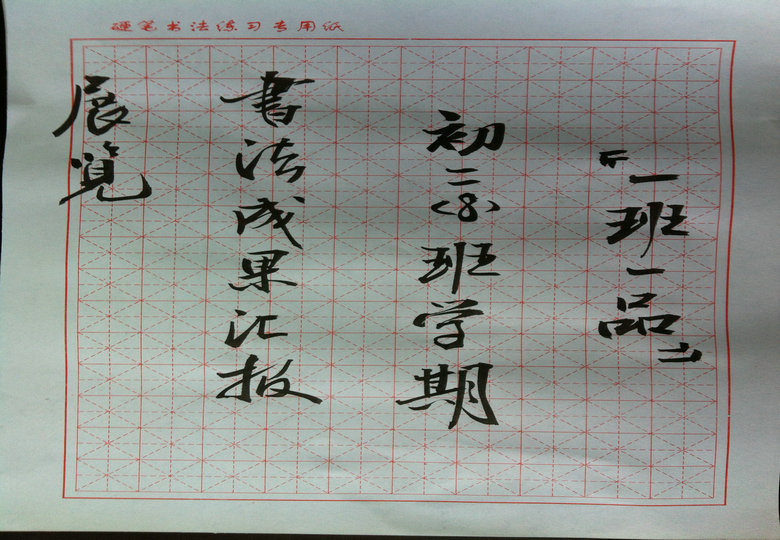 硬笔书法练习专用纸
『一班一品』
初二(8)班学期
書法成果汇报
展览